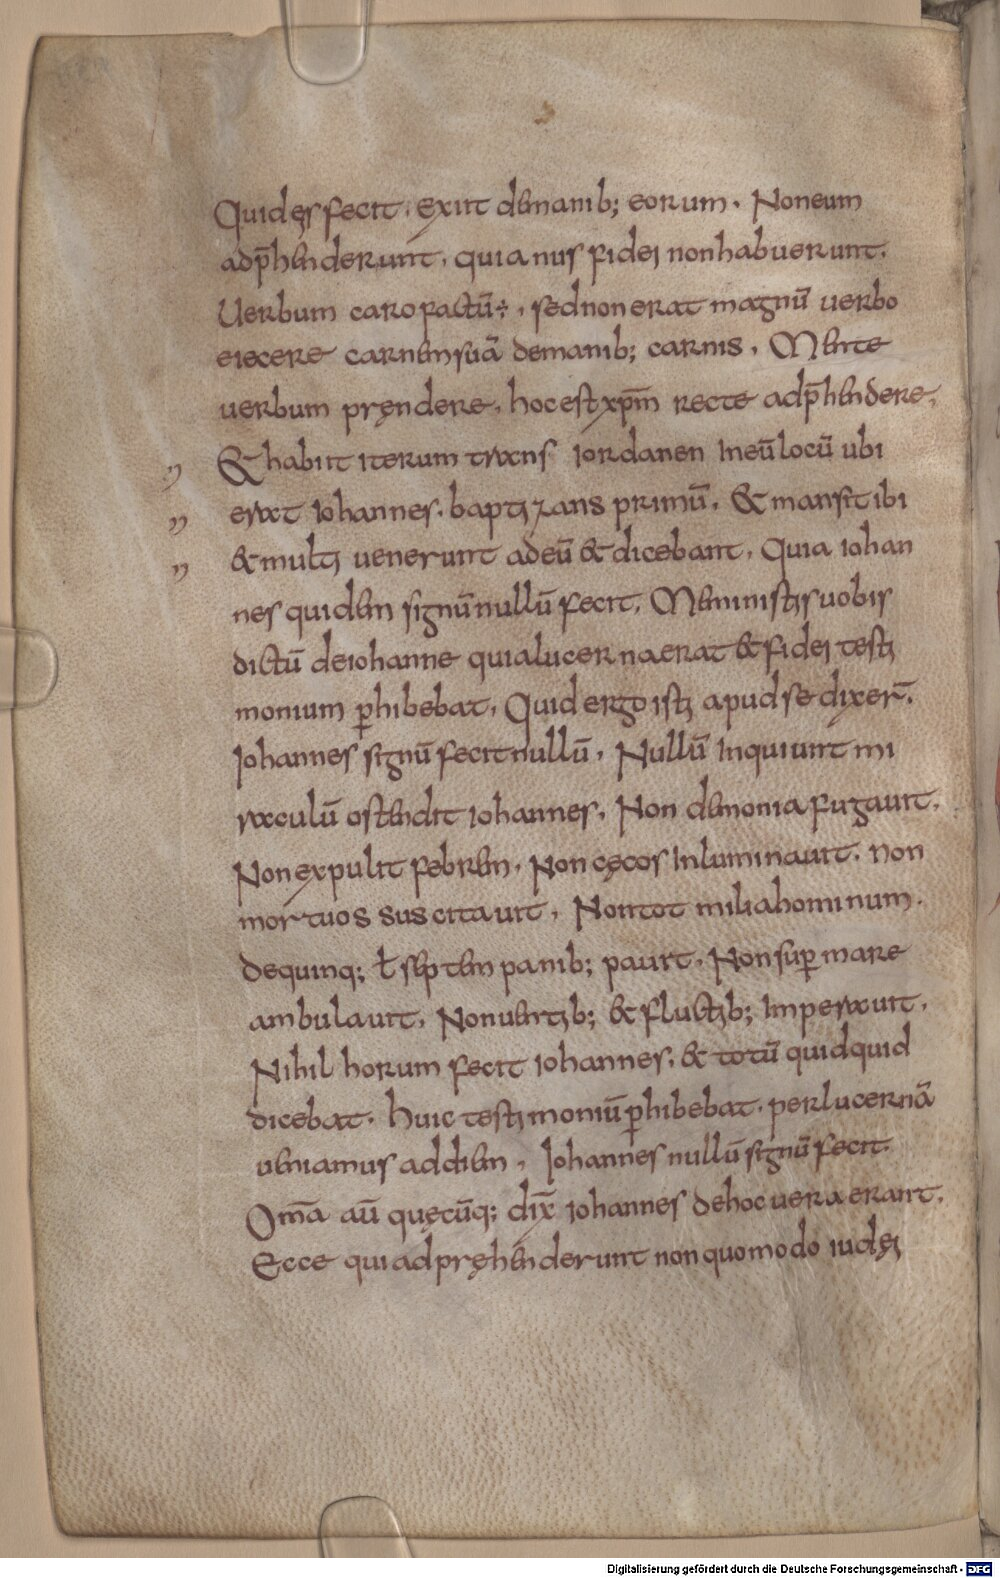 Quid ęs fecit. exiit de manib; eorum. Non eum
adp̄henderunt. quia nus fidei non habuerunt.
Uerbum caro factū÷. sed non erat magnū uerbo
eiecere carnem suā de manib; carnis. Mente
uerbum pręndere. hoc est xp̄m recte adp̄hendere.
& habiit iterum trans iordanen in eū locū ubi
erat iohannes. baptizans primū. & mansit ibi
& multi uenerunt ad eū & dicebant. Quia iohan
nes quidem signū nullū fecit. Meministis uobis
dictū de iohanne quia lucerna erat & fidei testi
monium p̱hibebat. Quid ergo isti apud se dixer̄.
Iohannes signū fecit nullū. Nullū inquiunt mi
raculū ostendit iohannes. Non demonia fugauit.
Non expulit febrem. Non cęcos inluminauit. non
mortuos suscitauit. Non tot milia hominum.
de quinq; ł septem panib; pauit. Non sup̱ mare
ambulauit. Non uentib; & fluctib; imperauit.
Nihil horum fecit iohannes. & totū quidquid
dicebat. huic testimoniū p̱hibebat. per lucernā
ueniamus ad diem. Iohannes nullū signū fecit.
Om̄a aū quęcūq; dix̄ iohannes de hoc uera erant.
Ecce qui adpręhenderunt non quomodo iudęi
Digitalisierung gefördert durch die Deutsche Forschungsgemeinschaft - DFG